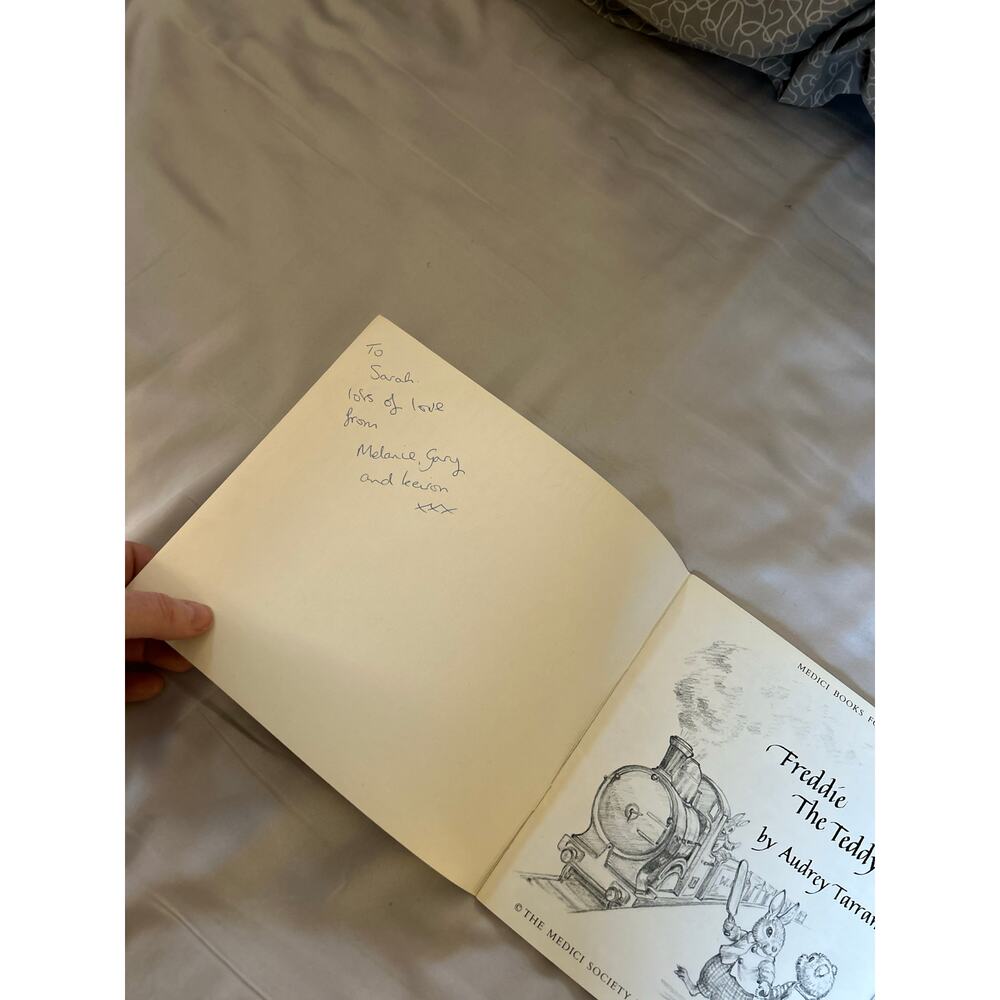 To
Sarah.
lots of love
from
Melanie, Gary
and
xxx
MEDICI BOOKS
Freddie
The Teddy
by Audrey
© THE MEDICI SOCIETY